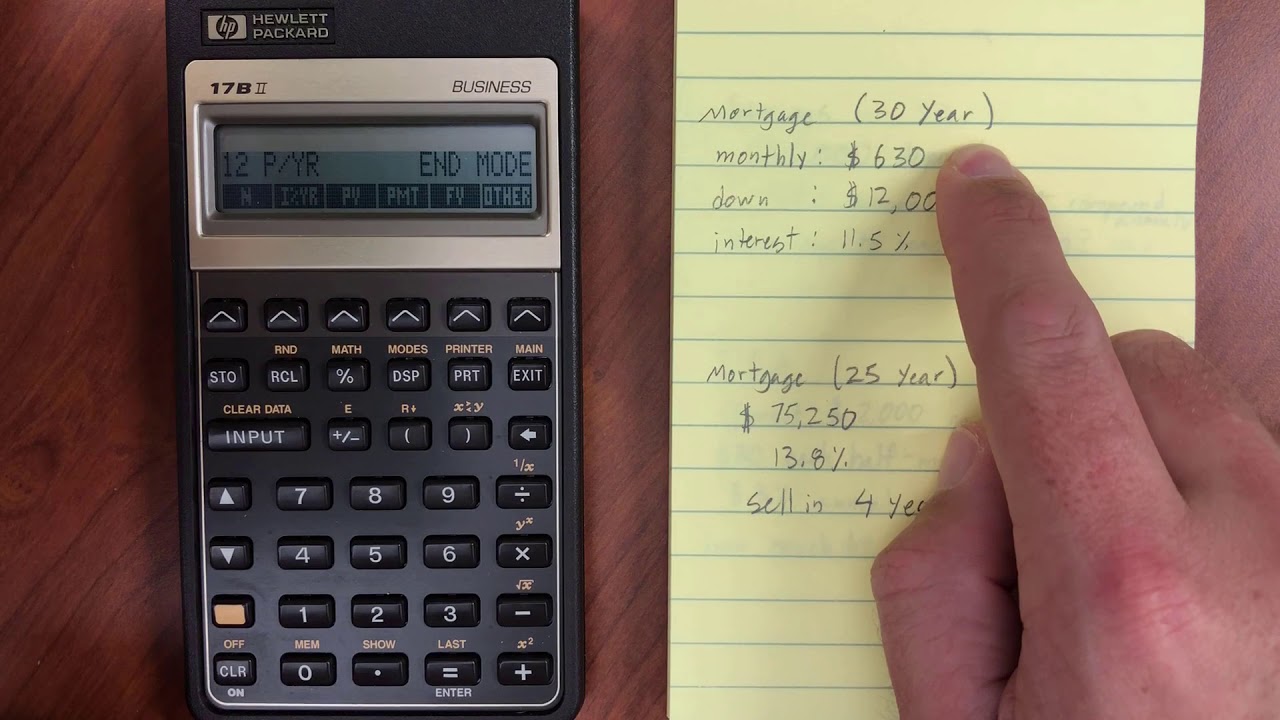 HEWLETT
PACKARD
hp
17B II BUSINESS
12 P/YR END MODE
N I%YR PV PMT FV OTHER
RND MATH MODES PRINTER MAIN
STO RCL % DSP PRT EXIT
CLEAR DATA E R↓ x≷y
INPUT +/− ( ) ←
1/x
▲ 7 8 9 ÷
yˣ
▼ 4 5 6 ×
√x
1 2 3 −
OFF MEM SHOW LAST x²
CLR 0 · = +
ON ENTER
Mortgage (30 Year)
monthly: $ 630
down : $12,00
interest: 11.5 %
Mortgage (25 Year)
$ 75,250
13.8%
sell in 4